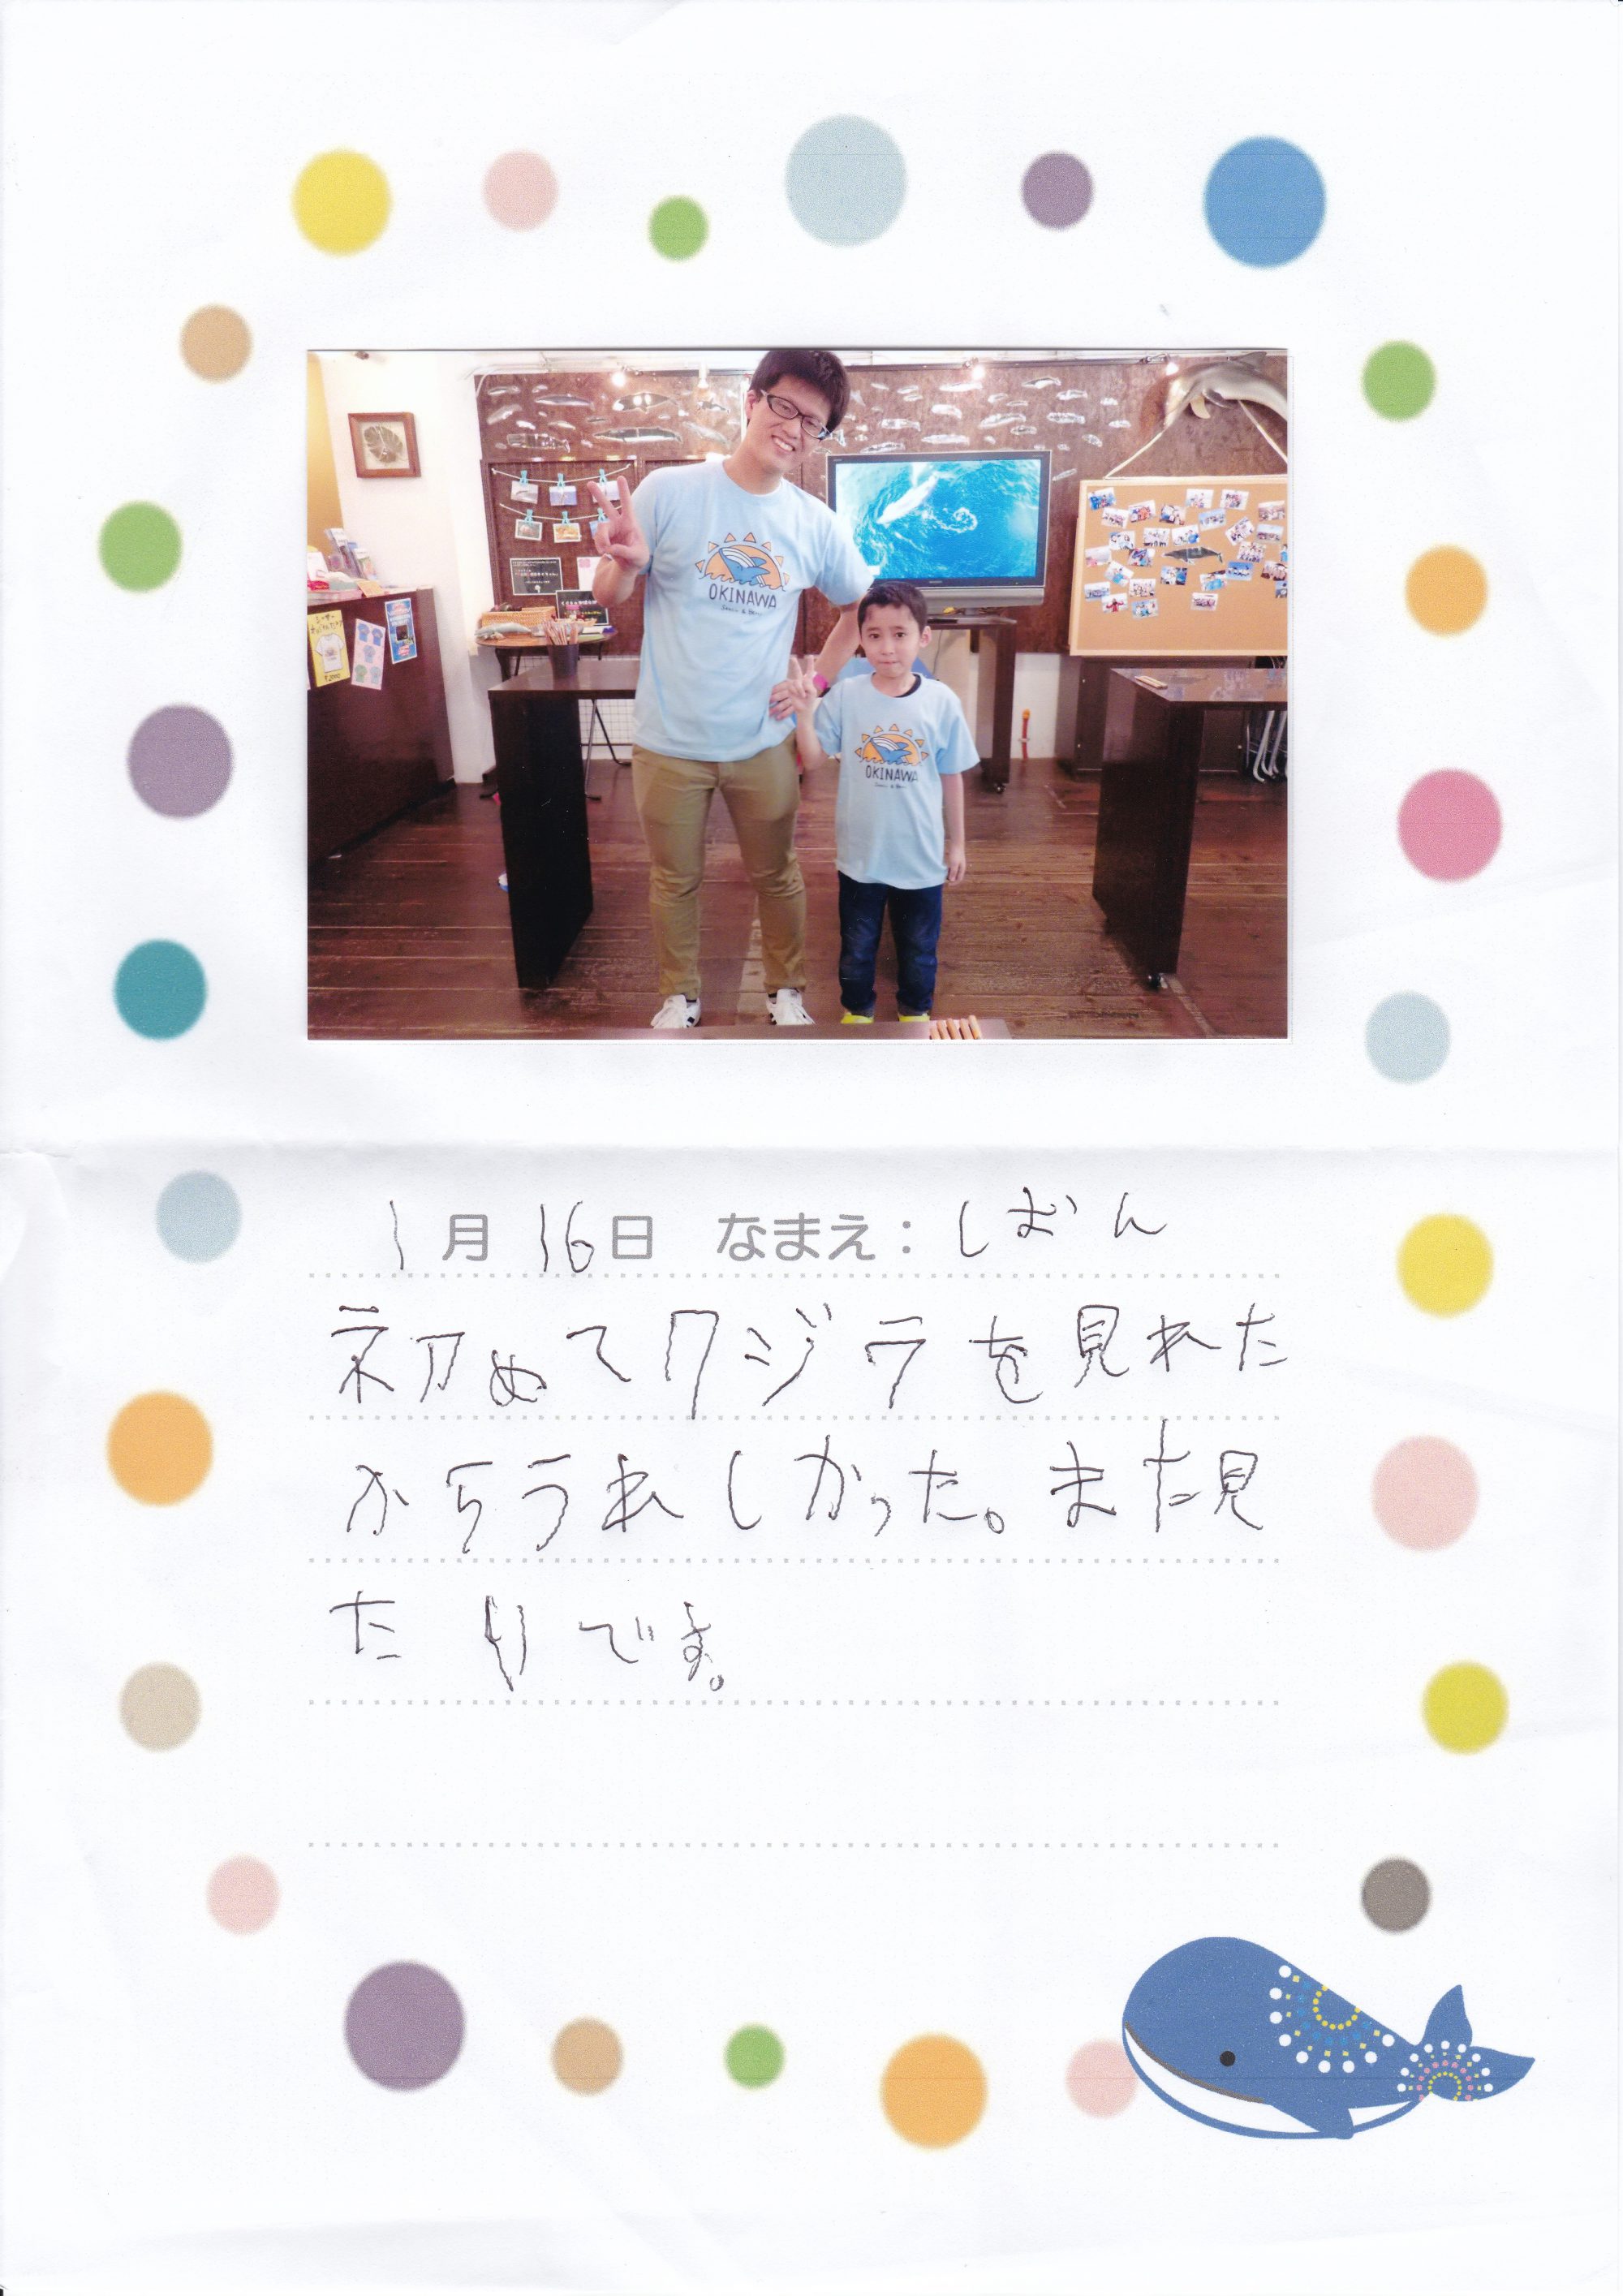 OKINAWA
OKINAWA
1月 16日 なまえ：しおん
初めてクジラを見れた
からうれしかった。また見
たいです。